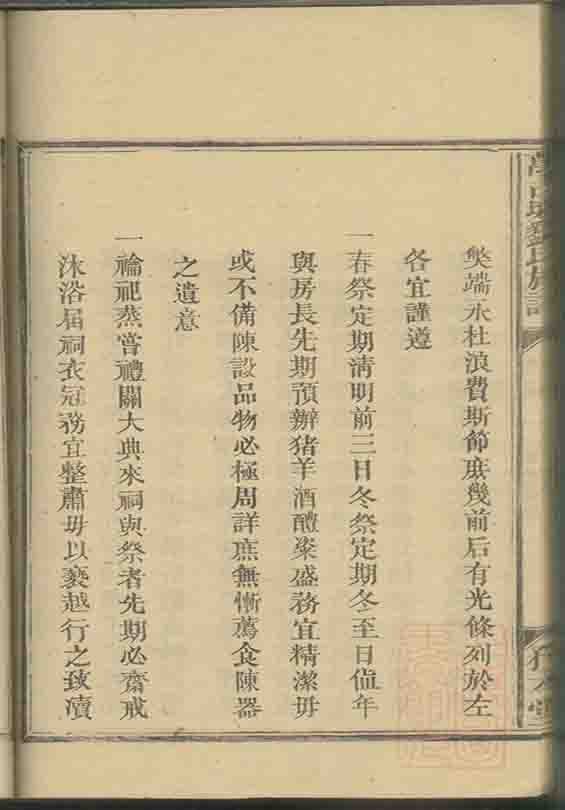 劉氏族譜
獘端永杜浪費斯節庶幾前后有光條列於左
各宜謹遵
一春祭定期淸明前三日冬祭定期冬至日值年
與房長先期預辦猪羊酒醴粢盛務宜精潔毋
或不備陳設品物必極周詳庶無慚薦食陳器
之遺意
一禴祀烝嘗禮關大典來祠與祭者先期必齋戒
沐浴届祠衣冠務宜整肅毋以褻越行之致瀆